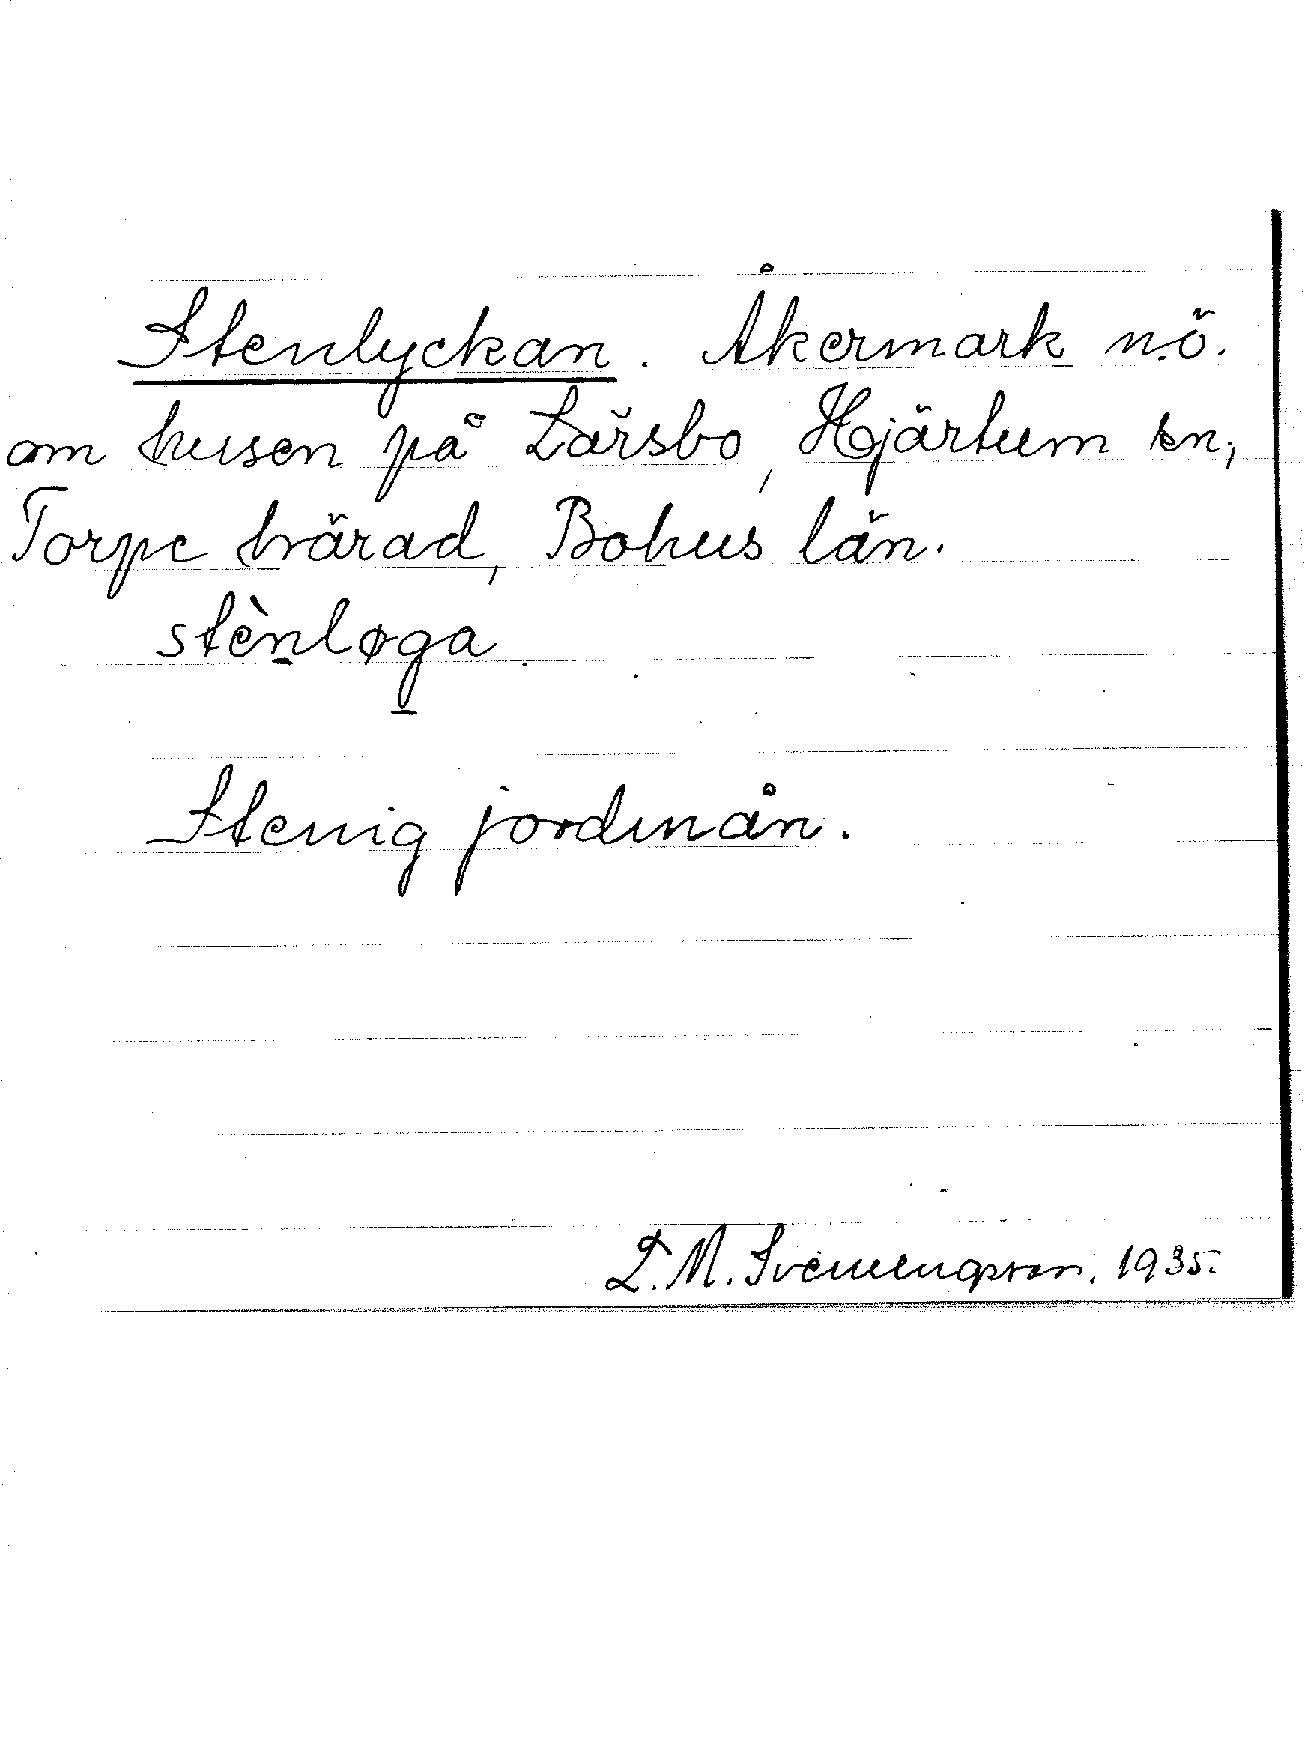 Stenlyckan. Åkermark n.ö.
om husen på Lärsbo, Hjärtum sn,
Torpe härad, Bohus län.
stènløga
Stenig jordmån.
L. M. Svenungsson. 1935.